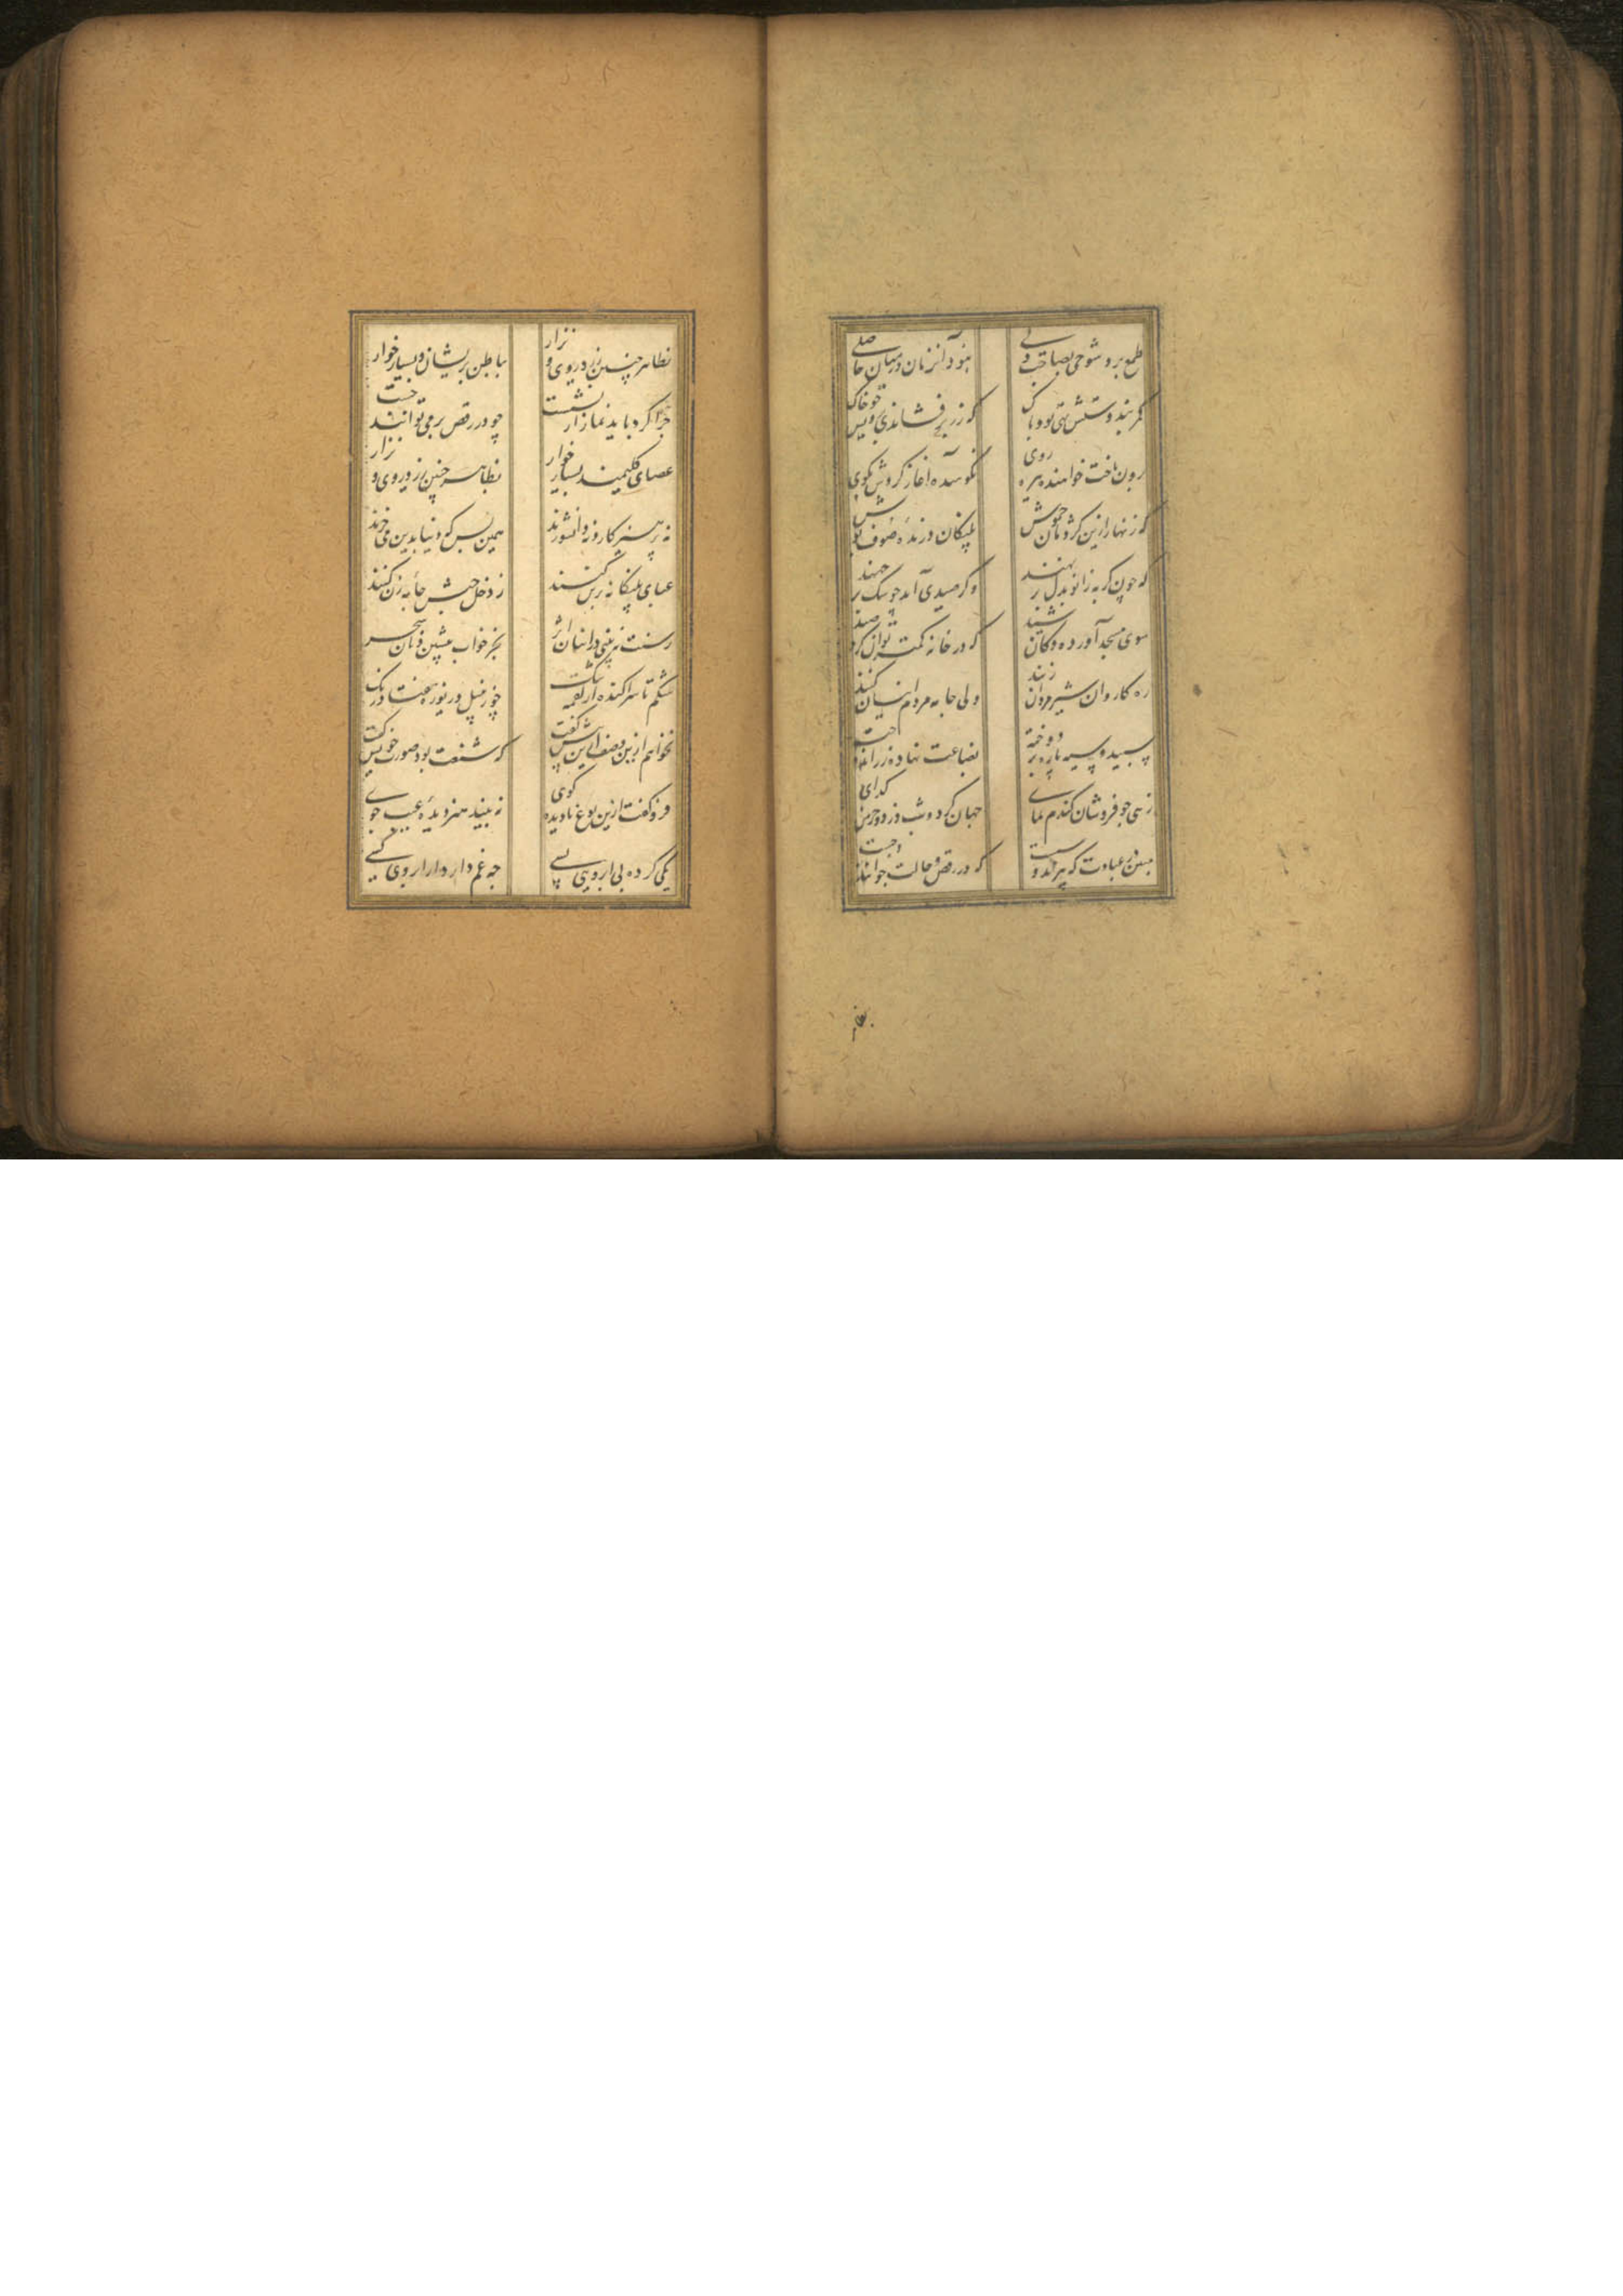 طمع برد شوخی بصاحب دلی
نبود آن زمان در میان حاصلی
کمربند و دستش تهی بود و پاک
که زر برفشاندی برویش چو خاک
برون تاخت خواهنده خیره روی
نکوهیدن آغاز کردش بکوی
که زنهار ازین کژدمان خموش
پلنکان درنده صوف پوش
که چون کربه زانو بدل بر نهند
وکر صیدی آید چو سک بر جهند
سوی مسجد آورده دکان شید
که در خانه کمتر توان کرد صید
ره کاروان شیر مردان زنند
ولی جامه مردم اینان کنند
سپید و سیه پاره بر دوخته
بضاعت نهاده زر اندوخته
زهی جو فروشان کندم نمای
جهان کرد و شب درد و خرمن کدای
مبین در عبادت که پیرند و سست
که در رقص و حالت جوانند و چست
بظاهر چنین زرد روی و نزار
بباطن پریشان و بسیار خوار
چرا کرد باید نماز از نشست
چو در رقص بر می توانند جست
عصای کلیمند بسیار خوار
بظاهر چنین زرد روی و نزار
نه پرهیزکار و نه دانشورند
همین بس که دنیا بدین می خرند
عبای پلنکانه در بر کنند
ز دخل حبش جامه زن کنند
ز سنت نه بینی در اینان اثر
بجز خواب پیشین و نان سحر
شکم تا سر آکنده از لقمه تنک
چو زنبیل دریوزه هفت رنک
نخواهم ازین وصف ازین بیش گفت
که شنعت بود صورت خویش گفت
فرو کفت ازین نوع نادیده کوی
نه بیند هنر دیده عیب جوی
یکی کرده بی آبرویی بسی
چه غم دارد از آبروی کسی
بظاهر